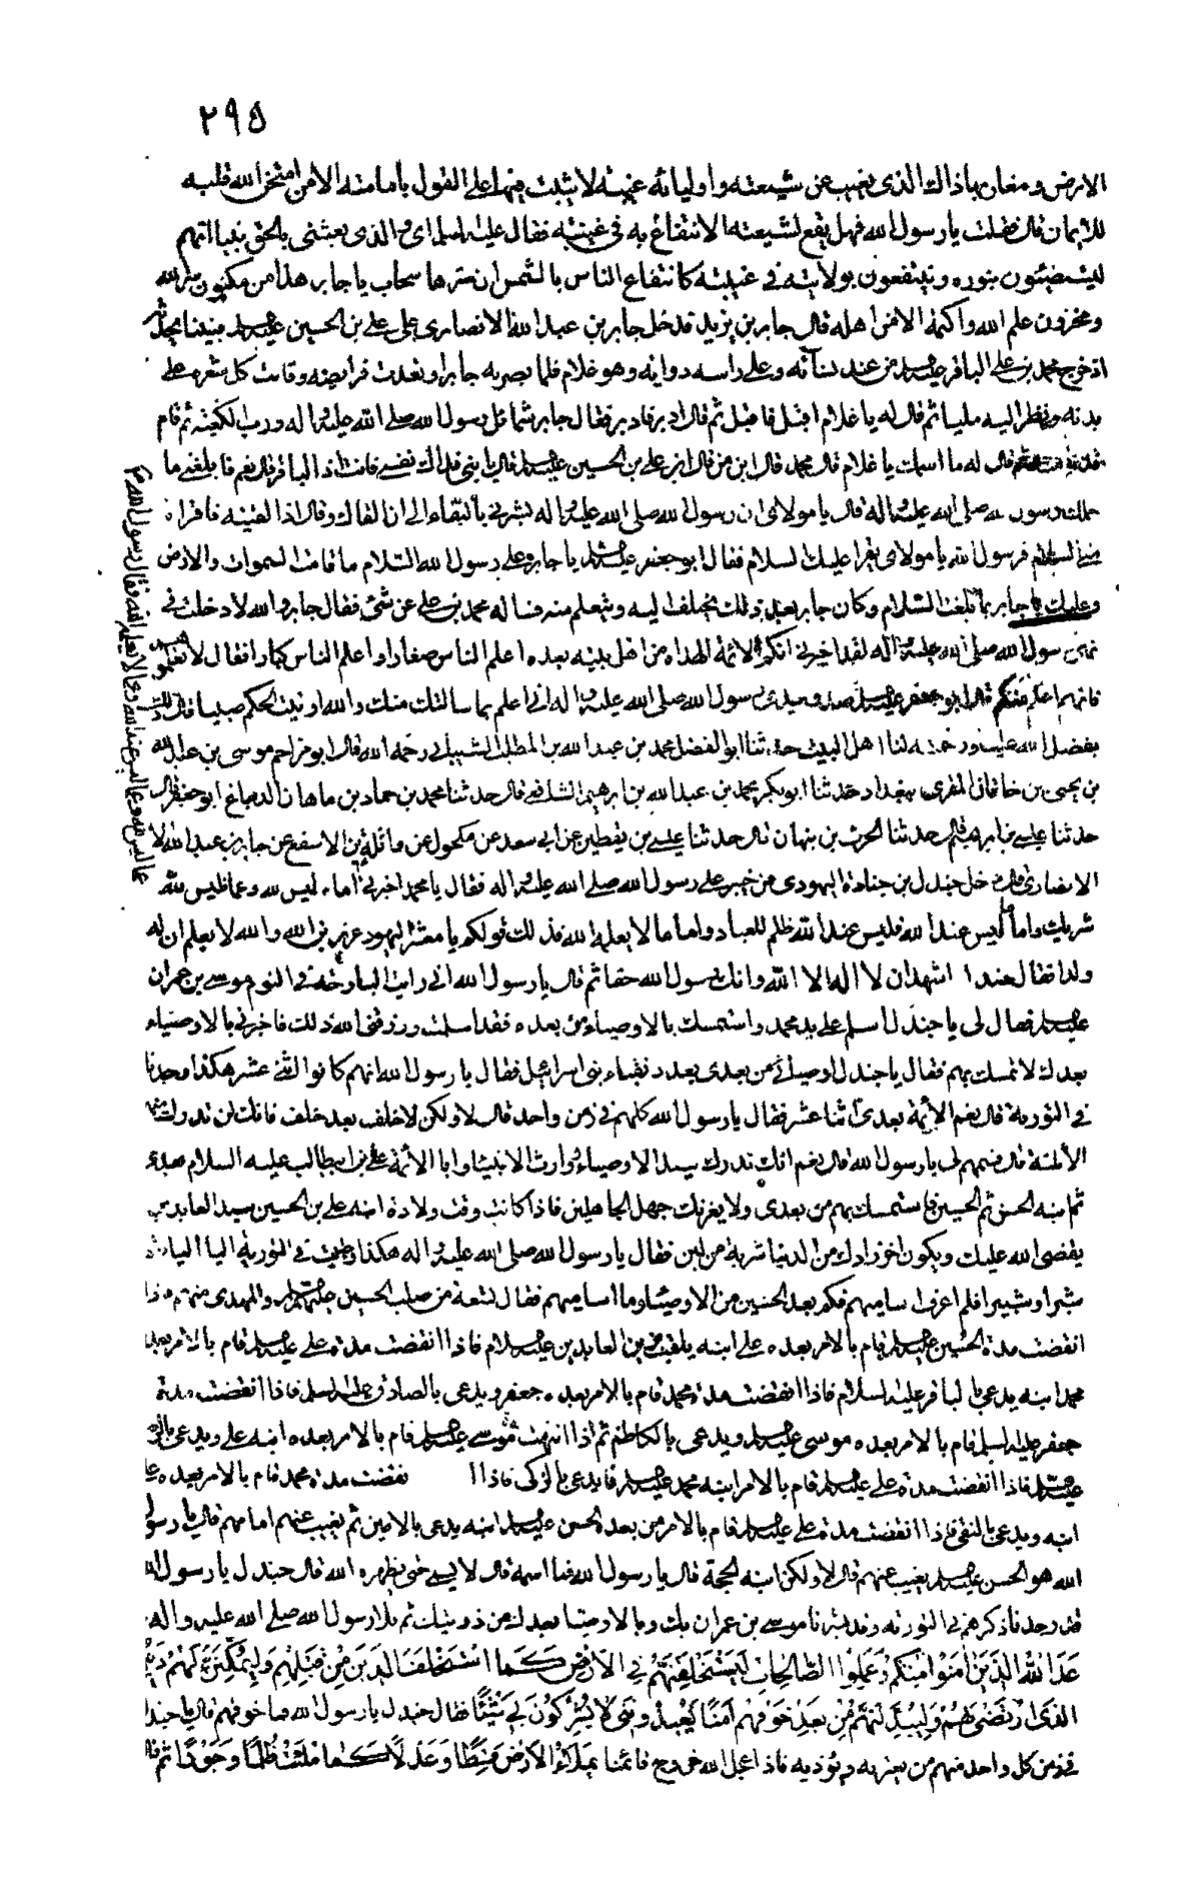 ٢٩٥
الارض ومغاربها ذاك الذى يغيب عن شيعته و اوليائه غيبة لا يثبت فيها على القول بامامته الا من امتحن الله قلبه
للايمان قال فقلت يا رسول الله فهل يقع لشيعته الانتفاع به فى غيبته فقال عليه السلم اى و الذى بعثنى بالحق نبيا انهم
ليستضيئون بنوره و ينتفعون بولايته فى غيبته كانتفاع الناس بالشمس ان سترها سحاب يا جابر هذا من مكنون سر الله
و مخزون علم الله واكتمه الا من اهله قال جابر بن يزيد فدخل جابر بن عبد الله الانصارى على على بن الحسين عليه السلم بينما يحدثه
اذ خرج محمد بن على الباقر عليه السلم من عند نسائه و على راسه ذوابة وهو غلام فلما بصر به جابر ارتعدت فرايصه و قامت كل شعرة على
بدنه و نظر اليه مليا ثم قال له يا غلام اقبل فاقبل ثم قال ادبر فادبر فقال جابر شمائل رسول الله صلى الله عليه و اله و رب الكعبة ثم قام
قال له ما اسمك يا غلام قال محمد قال ابن من قال ابن على بن الحسين عليه السلم قال يا بنى فداك نفسى فانت اذا الباقر قال نعم فابلغنى ما
حملك رسول الله صلى الله عليه و اله قال يا مولاى ان رسول الله صلى الله عليه و اله بشرنى بالبقاء الى ان القاك و قال اذا لقيته فاقراه
منى السلام فرسول الله يا مولاى يقرا عليك السلام فقال ابو جعفر عليه السلم يا جابر و على رسول الله السلام ما قامت السموات والارض
و عليك يا جابر بما بلغت السلام و كان جابر بعد ذلك يختلف اليه و يتعلم منه فساله محمد بن على عن شئ فقال جابر والله لا دخلت فى
نهى رسول الله صلى الله عليه و اله لقد اخبرنى انكم الائمة الهداة من اهل بيته بعده اعلم الناس صغارا و اعلم الناس كبارا فقال لا تعلموهم
فانهم اعلم منكم قال ابو جعفر عليه السلم صدق جدى رسول الله صلى الله عليه و اله انى اعلم بما سالتك منك والله اوتيت الحكم صبيا كل ذلك
بفضل الله علينا و رحمته لنا اهل البيت حدثنا ابو الفضل محمد بن عبد الله بن المطلب الشيبانى رحمه الله قال ابو مزاحم موسى بن عبد الله
بن يحيى بن خاقان المقرى ببغداد حدثنا ابو بكر محمد بن عبد الله بن ابرهيم الشافعى قال حدثنا محمد بن حماد بن ماهان الدباغ ابو جعفر قال
حدثنا عيسى بن ابرهيم قال حدثنا الحرث بن نبهان قال حدثنا عيسى بن يقطين عن ابى سعد عن مكحول عن واثلة بن الاسفع عن جابر بن عبد الله
الانصارى قال دخل جندل بن جنادة اليهودى من خيبر على رسول الله صلى الله عليه و اله فقال يا محمد اخبرنى اما ما ليس لله و عما ليس لله
شريك و اما ما ليس عند الله فليس عند الله ظلم للعباد و اما ما لا يعلمه الله فذلك قولكم يا معشر اليهود عزير بن الله والله لا يعلم ان له
ولدا فقال جندل اشهد ان لا اله الا الله و انك رسول الله حقا ثم قال يا رسول الله انى رايت البارحة فى النوم موسى بن عمران
عليه السلم فقال لى يا جندل اسلم على يد محمد و استمسك بالاوصياء من بعده فقد اسلمت و رزقنى الله ذلك فاخبرنى بالاوصياء
بعدك لاتمسك بهم فقال يا جندل اوصيائى من بعدى بعدد نقباء بنى اسرائيل فقال يا رسول الله انهم كانوا اثنى عشر هكذا وجدنا
فى التورية قال نعم الائمة بعدى اثنا عشر فقال يا رسول الله كلهم فى زمن واحد قال لا ولكن لا خلف بعد خلف فانك لن تدرك منهم
الا ثلثة قال فسمهم لى يا رسول الله قال نعم انك تدرك سيد الاوصياء و وارث الانبياء و ابا الائمة على بن ابى طالب عليه السلام بعدى
ثم ابنه الحسن ثم الحسين فاستمسك بهم من بعدى ولا يغرنك جهل الجاهلين فاذا كانت وقت ولادة ابنه على بن الحسين سيد العابدين
يقضى الله عليك و يكون اخر زادك من الدنيا شربة من لبن فقال يا رسول الله صلى الله عليه و اله هكذا وجدت فى التورية اليا اليا
شبرا و شبيرا فلم اعرف اساميهم فكم بعد الحسين من الاوصياء وما اساميهم فقال تسعة من صلب الحسين عليه السلم و المهدى منهم فاذا
انقضت مدة الحسين عليه السلم قام بالامر بعده على ابنه يلقب بزين العابدين عليه السلام فاذا انقضت مدة على عليه السلم قام بالامر بعده
محمد ابنه يدعى بالباقر عليه السلام فاذا انقضت مدة محمد قام بالامر بعده جعفر و يدعى بالصادق عليه السلم فاذا انقضت مدة
جعفر عليه السلم قام بالامر بعده موسى عليه السلم و يدعى بالكاظم ثم اذا انتهت مدة موسى عليه السلم قام بالامر بعده ابنه على و يدعى بالرضا
عليه السلم فاذا انقضت مدة على عليه السلم قام بالامر ابنه محمد عليه السلم فايدعى بالزكى فاذا ا نقضت مدة محمد قام بالامر بعده على
ابنه و يدعى بالنقى فاذا انقضت مدة على عليه السلم قام بالامر من بعد الحسن عليه السلم ابنه يدعى بالامين ثم يغيب عنهم امامهم قال يا رسول
الله هو الحسن عليه السلم يغيب عنهم قال لا ولكن ابنه الحجة قال يا رسول الله فما اسمه قال لا يسمى حتى يظهره الله قال جندل يا رسول الله
قد وجدنا ذكرهم فى التورية و قد بشرنا موسى بن عمران بك و بالاوصياء بعدك من ذريتك ثم تلا رسول الله صلى الله عليه و اله
وَعَدَ الله الذين امنوا منكم و عملوا الصالحات ليستخلفنهم فى الارض كما استخلف الذين من قبلهم و ليمكنن لهم دينهم
الذى ارتضى لهم و ليبدلنهم من بعد خوفهم امنا يعبدوننى لا يشركون بى شيئا فقال جندل يا رسول الله فما خوفهم قال يا جندل
فى زمن كل واحد منهم من يعتريه و يؤذيه فاذا عجل الله خروج قائمنا يملاء الارض قسطا و عدلا كما ملئت ظلما و جورا ثم قال
عما ليس لله و عما ليس عند الله و عما لا يعلمه الله فقال رسول الله